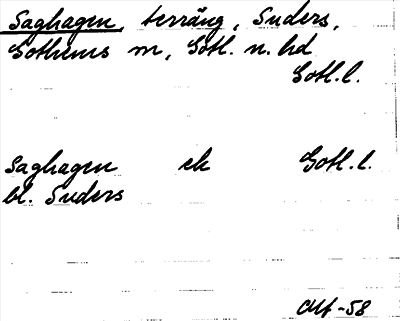 Saghagen, terräng, Suders,
Gothems m, Gotl. n. hd
Gotl. l.
Saghagen ek Gotl. l.
bl. Suders
-58